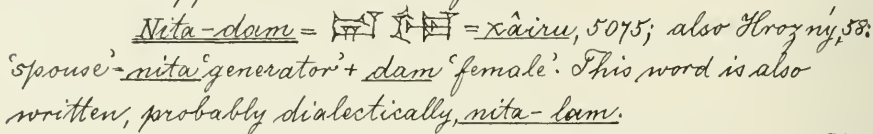 Nita-dam = = xâiru, 5075; also Hrozný, 58:
‘spouse’-nita ‘generator’ + dam ‘female’. This word is also
written, probably dialectically, nita-lam.